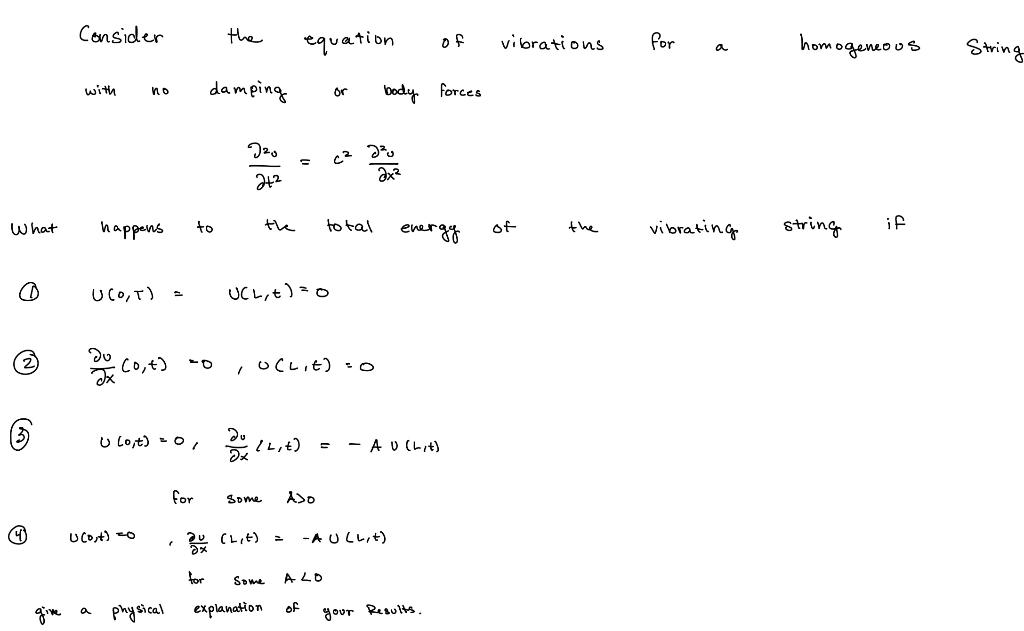 Consider the equation of vibrations for a homogeneous String
with no damping or body forces
∂²u/∂t² = c² ∂²u/∂x²
What happens to the total energy of the vibrating string if
① U(0,T) = U(L,t) = 0
② ∂u/∂x (0,t) = 0 , U(L,t) = 0
③ U(0,t) = 0 , ∂u/∂x (L,t) = - A U(L,t)
for some A>0
④ U(0,t) = 0 , ∂u/∂x (L,t) = -A U(L,t)
for some A<0
give a physical explanation of your Results.